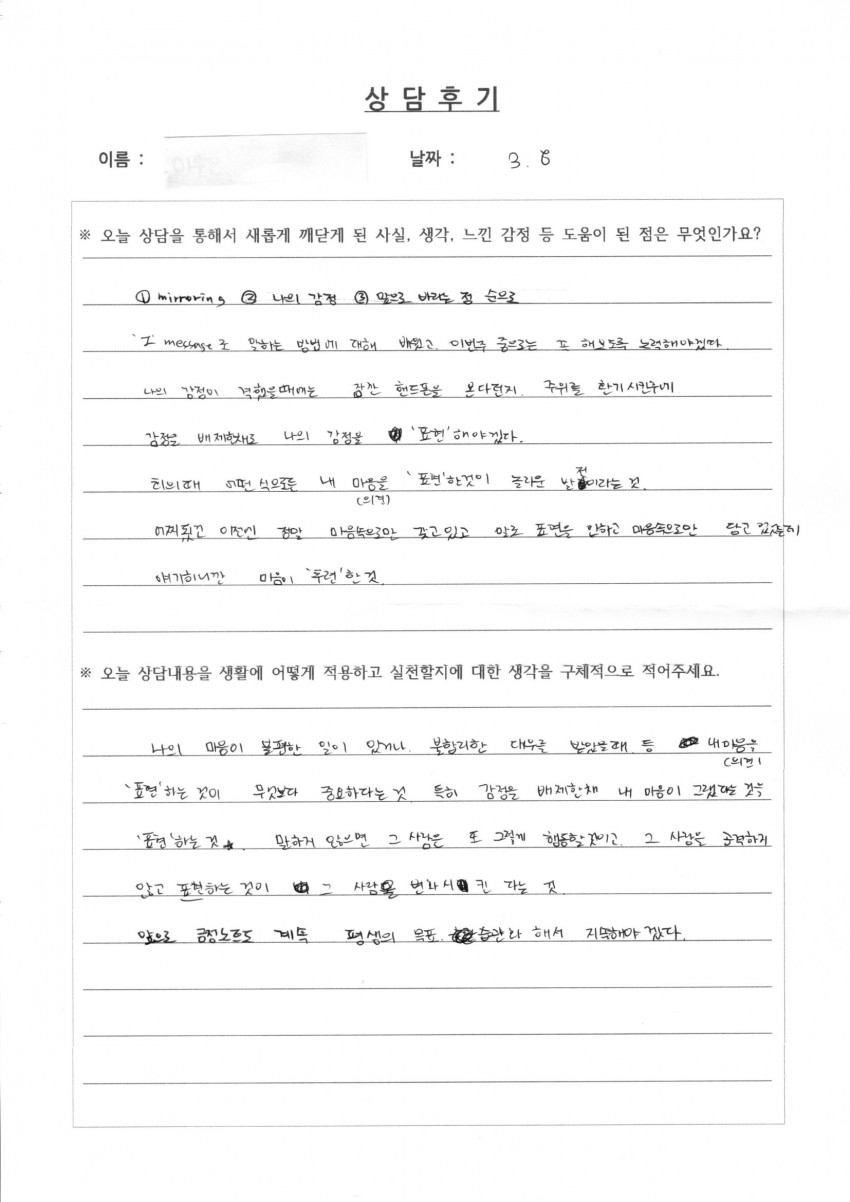 상 담 후 기
이름 :
날짜 : 3. 6
※ 오늘 상담을 통해서 새롭게 깨닫게 된 사실, 생각, 느낀 감정 등 도움이 된 점은 무엇인가요?
① mirroring ② 나의 감정 ③ 앞으로 바라는 점 순으로
'I' message로 말하는 방법에 대해 배웠고, 이번주 중으로는 꼭 해보도록 노력해야겠다.
나의 감정이 격했을때에는 잠깐 핸드폰을 본다던지, 주위를 환기시킨후에
감정을 배제한채로 나의 감정을 '표현'해야겠다.
회의때 어떤 식으로든 내 마음을 '표현'한것이 놀라운 발전이라는 것.
(의견)
어찌됐건 이전엔 정말 마음속으로만 갖고있고 말로 표현을 안하고 마음속으로만 담고 있었는데
얘기하니깐 마음이 '후련'한 것.
※ 오늘 상담내용을 생활에 어떻게 적용하고 실천할지에 대한 생각을 구체적으로 적어주세요.
나의 마음이 불편한 일이 있거나, 불합리한 대우를 받았을때 등 내마음을
(의견)
'표현'하는 것이 무엇보다 중요하다는 것. 특히 감정을 배제한채 내 마음이 그랬다는 것을
'표현'하는 것. 말하지 않으면 그 사람은 또 그렇게 행동할것이고, 그 사람을 공격하지
않고 표현하는 것이 그 사람을 변화시킨 다는 것.
앞으로 긍정노트도 계속 평생의 목표, 습관라 해서 지속해야겠다.